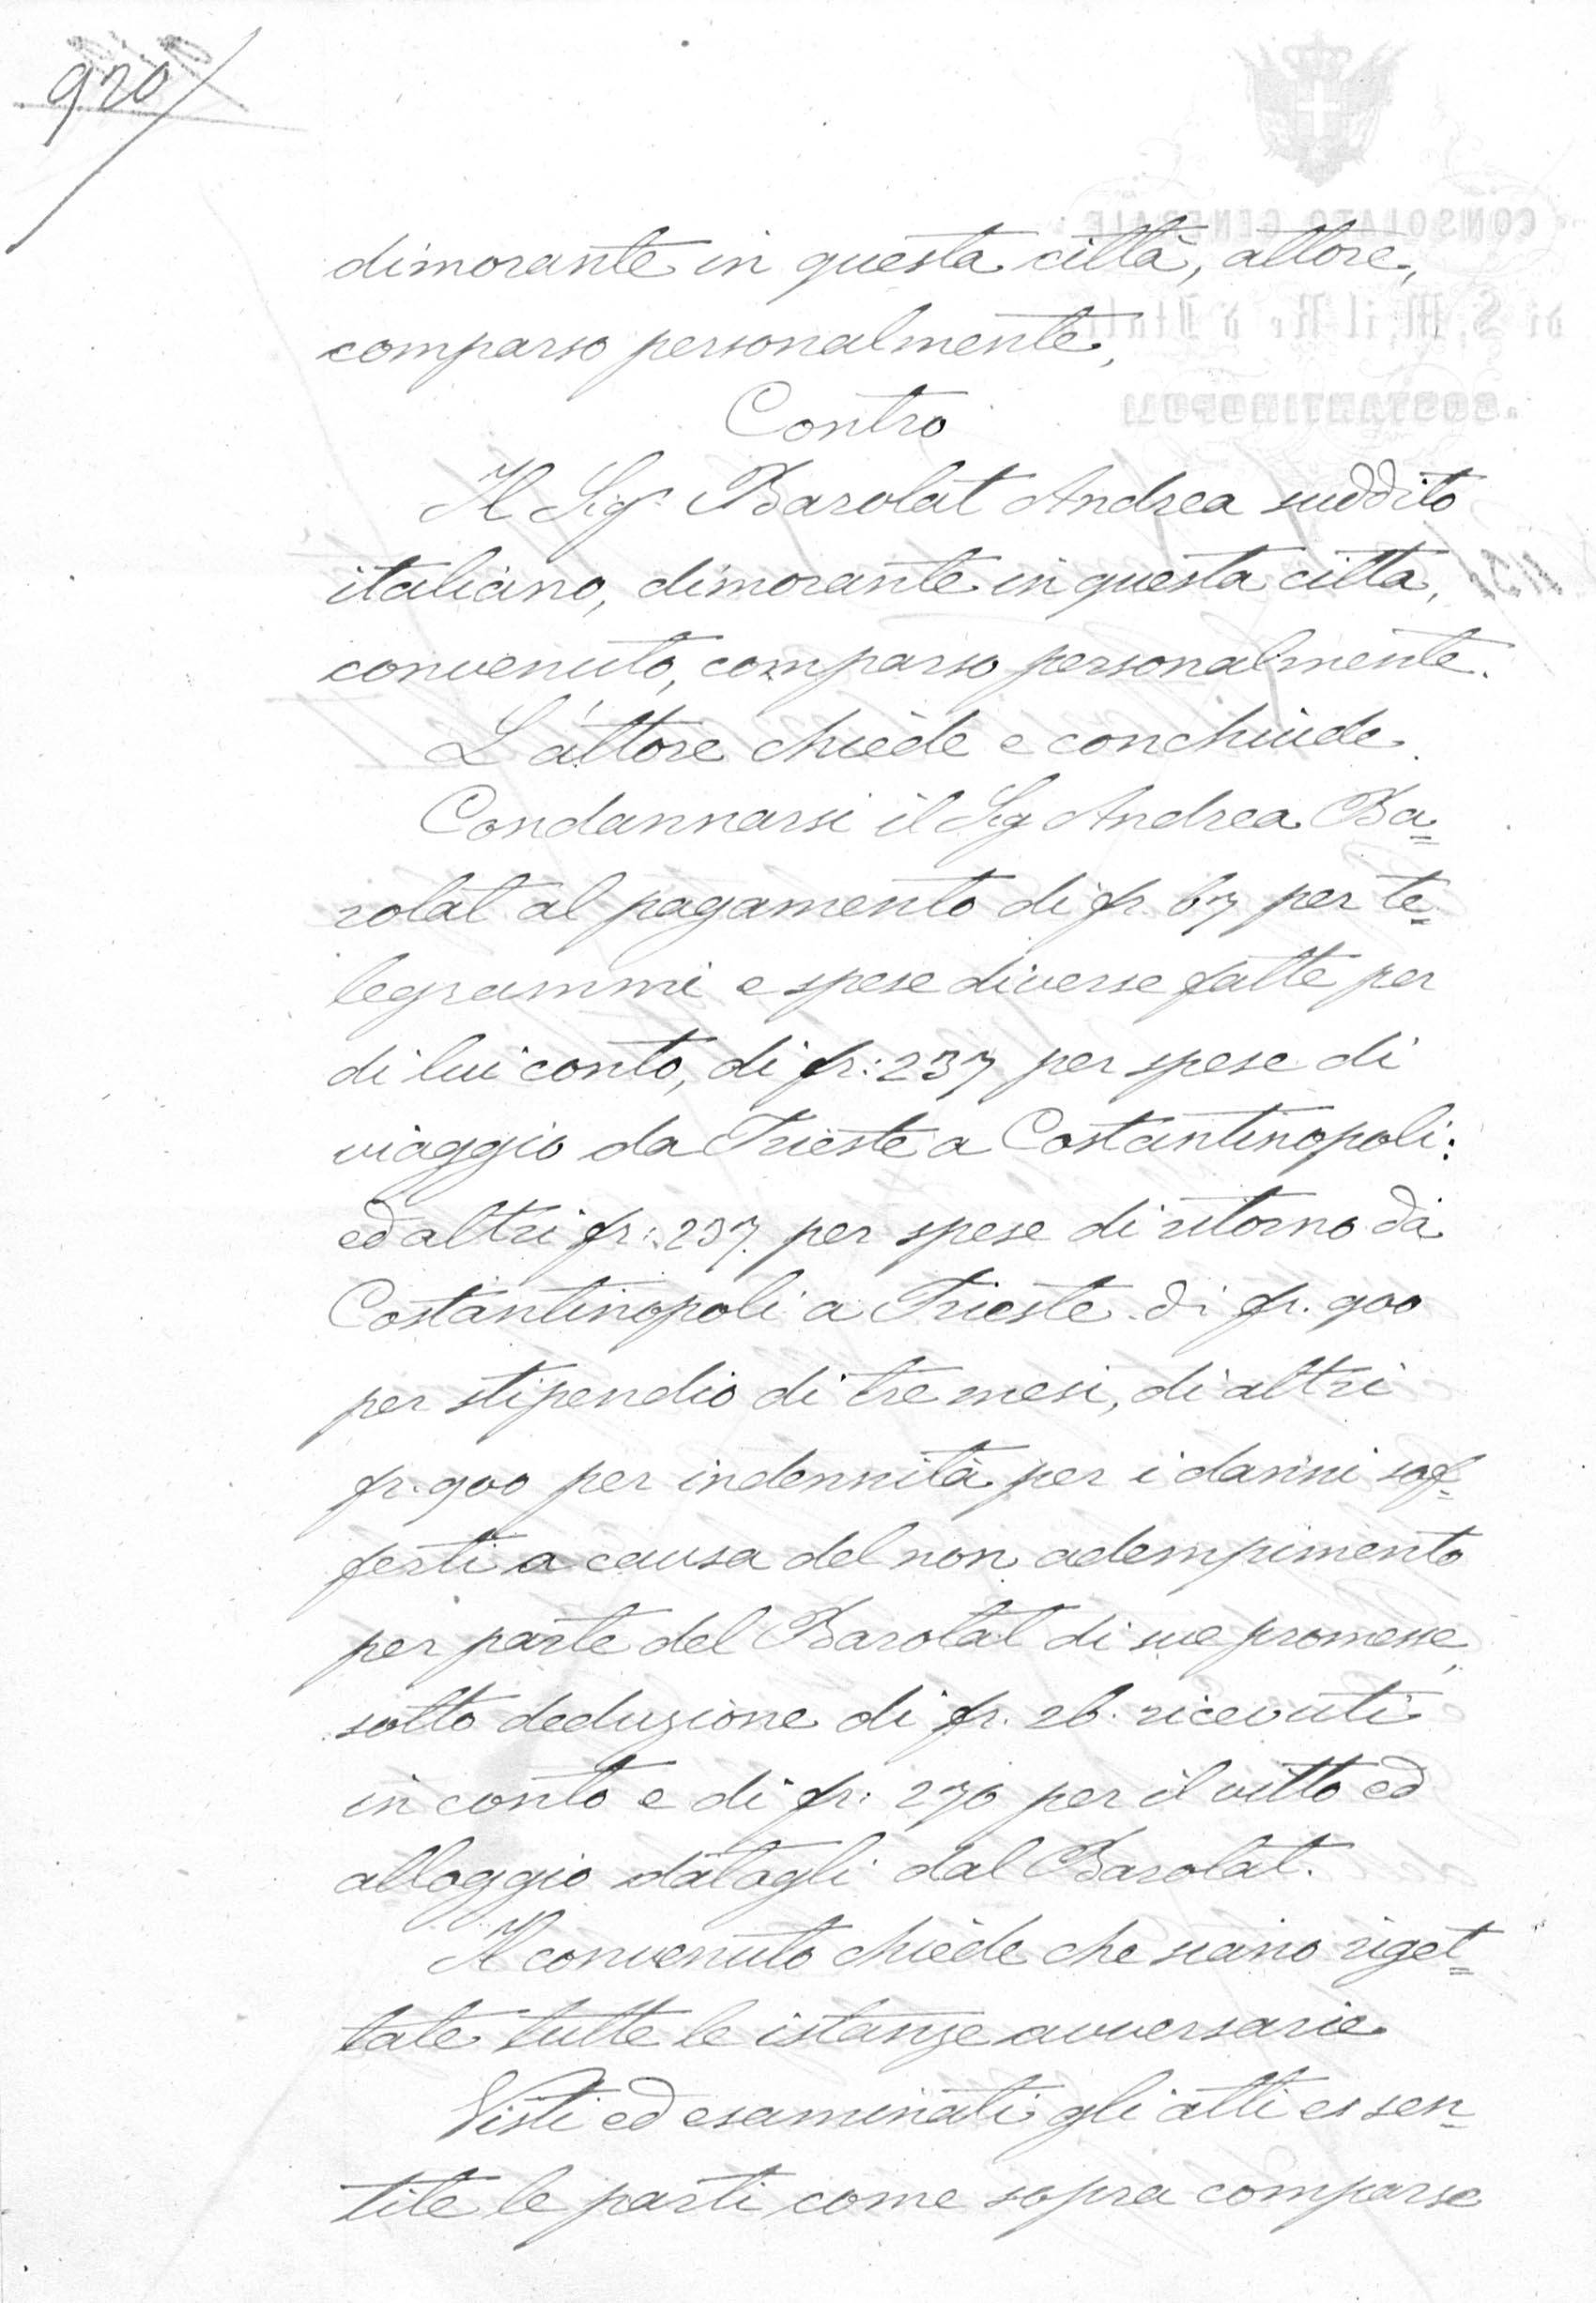 920
dimorante in questa città, attore,
comparso personalmente,
Contro
Il Sigr Barolat Andrea suddito
italiano, dimorante in questa città,
convenuto, comparso personalmente.
L'attore chiede e conchiude.
Condannarsi il Sig Andrea Ba=
rolat al pagamento di fr. 67 per te=
legrammi e spese diverse fatte per
di lui conto, di fr: 237 per spese di
viaggio da Trieste a Costantinopoli:
ed altri fr: 237. per spese di ritorno da
Costantinopoli a Trieste. di fr. 900
per stipendio di tre mesi, di altri
fr. 900 per indennità per i danni sof=
ferti a causa del non adempimento
per parte del Barolat di sue promesse,
sotto deduzione di fr. 26. ricevuti
in conto e di fr: 276 per il vitto ed
alloggio datogli dal Barolat.
Il convenuto chiede che siano riget=
tate tutte le istanze avversarie
Visti ed esaminati gli atti e sen=
tite le parti come sopra comparse